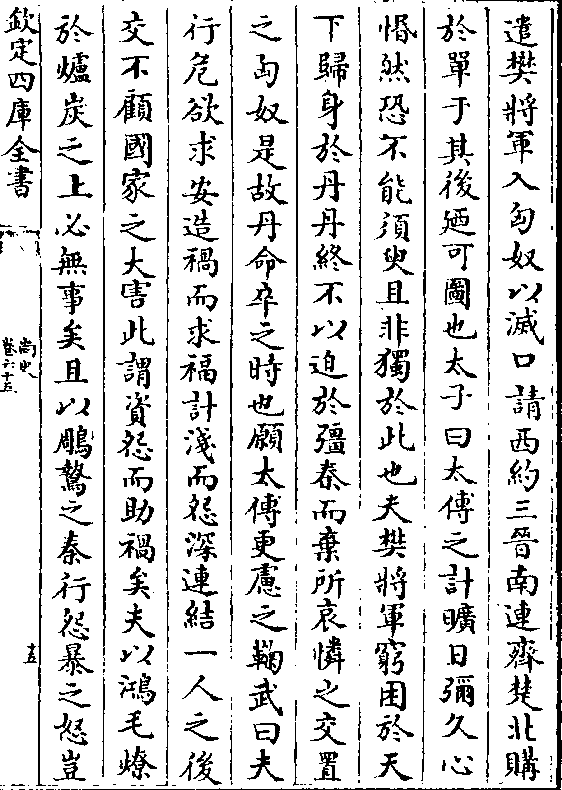 遣樊將軍入匈奴以滅口請西約三晉南連齊楚北購
於單于其後廼可圖也太子曰太傅之計曠日彌久心
惛然恐不能須臾且非獨於此也夫樊將軍窮困於天
下歸身於丹丹終不以迫於彊秦而棄所哀憐之交置
之匈奴是故丹命卒之時也願太傅更慮之鞠武曰夫
行危欲求安造禍而求福計淺而怨深連結一人之後
交不顧國家之大害此謂資怨而助禍矣夫以鴻毛燎
於爐炭之上必無事矣且以鵰鷙之秦行怨暴之怒豈
欽定四庫全書
尚史
卷六十五
十五